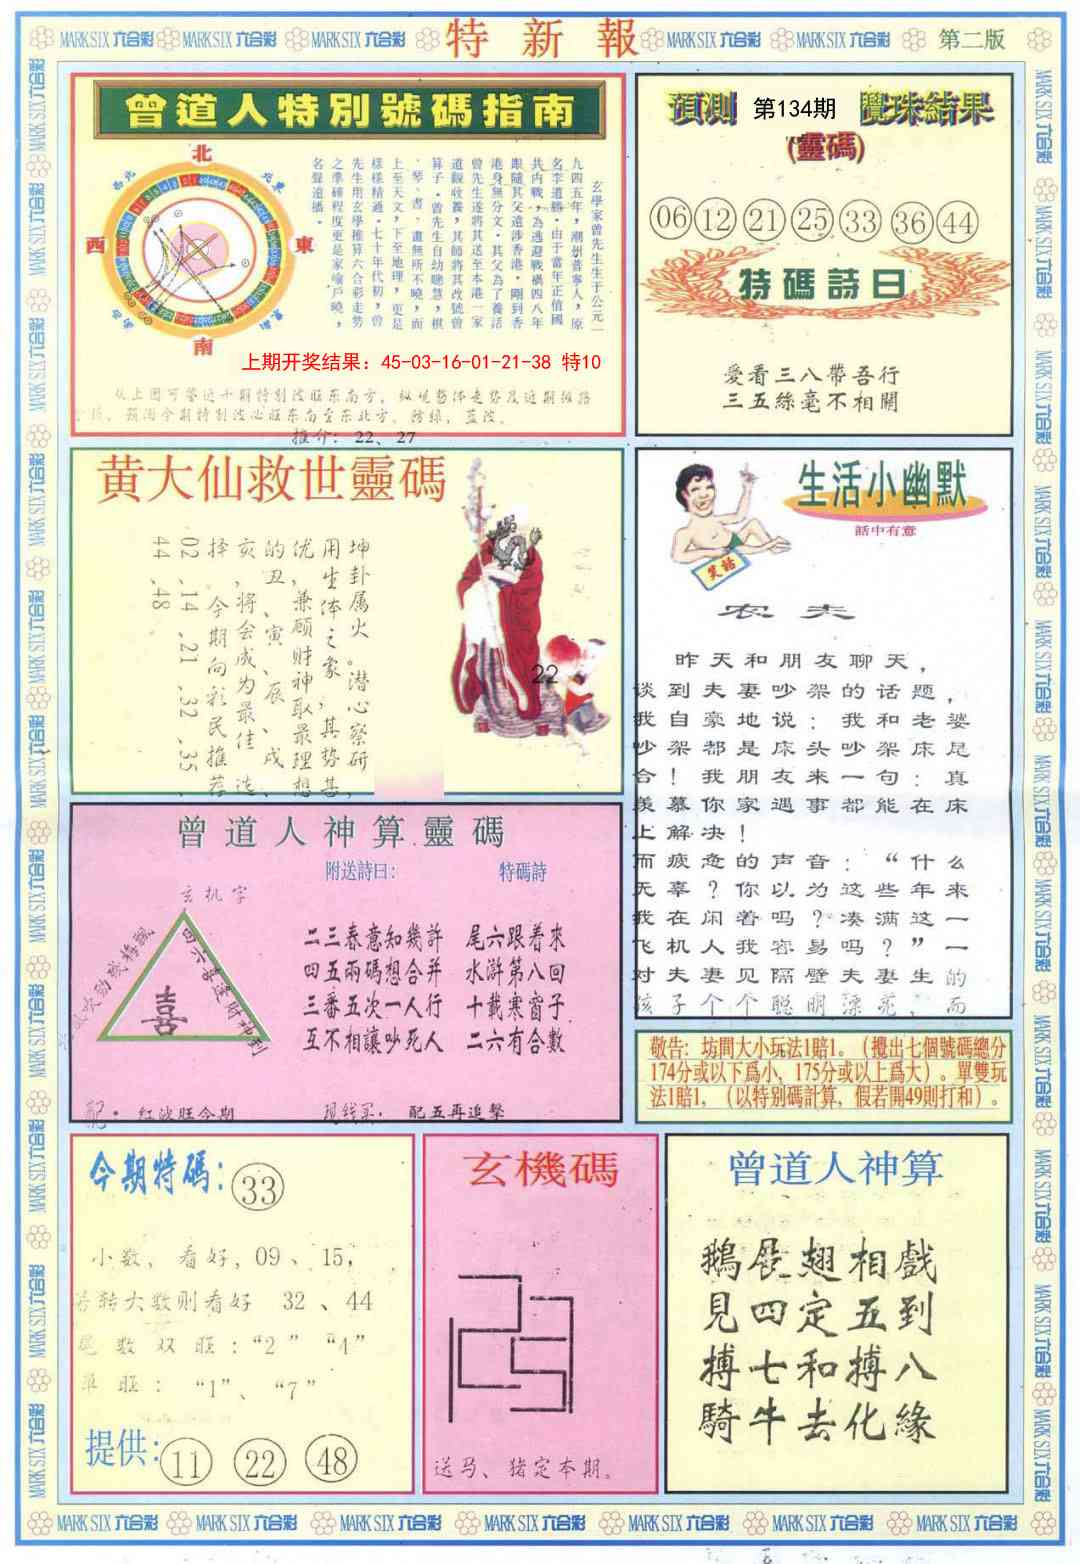 MARK SIX 六合彩 MARK SIX 六合彩 MARK SIX 六合彩 特新報 MARK SIX 六合彩 MARK SIX 六合彩 第二版
曾道人特別號碼指南
北
西 東
南
玄學家曾先生生于公元一
九四五年，潮州普寧人，原
名李道勝．由于當年正值國
共內戰，為逃避戰禍四八年
跟隨其父遠涉香港．剛到香
港身無分文．其父為了養活
曾先生遂將其送至本港一家
道觀收養，其師將其改號曾
算子．曾先生自幼聰慧，棋
、琴、書、畫無所不曉，而
上至天文，下至地理，更是
樣樣精通．七十年代初，曾
先生用玄學推算六合彩走勢
之準確程度更是家喻戶曉，
名聲遠播．
上期开奖结果：45-03-16-01-21-38 特10
从上图可鉴近十期特别波旺东南方，纵观整体走势及近期推路
预测今期特别波必旺东南至东北方。防绿，蓝波。
推介：22、27
預測 第134期 攪珠結果
(靈碼)
06 12 21 25 33 36 44
特碼詩曰
愛看三八帶吾行
三五絲毫不相關
黄大仙救世靈碼
坤卦属火。潜心察研，
用生体之象，其势甚
优，兼顾财神取最理想
的丑、寅、辰、戌、
亥，将会成为最佳选
择，今期向彩民推荐
02、14、21、32、35、
44、48
22
生活小幽默
話中有意
笑話
农夫
昨天和朋友聊天，
谈到夫妻吵架的话题，
我自豪地说：我和老婆
吵架都是床头吵架床尾
合！我朋友来一句：真
羡慕你家遇事都能在床
上解决！
而疲惫的声音：“什么
无辜？你以为这些年来
我在闲着吗？凑满这一
飞机人我容易吗？”一
对夫妻见隔壁夫妻生的
孩子个个聪明漂亮，而
曾道人神算靈碼
附送詩曰： 特碼詩
玄机字
四六喜逢财神到
喜
二三春意知幾許 尾六跟着來
四五兩碼想合并 水滸第八回
三番五次一人行 十載寒窗子
互不相讓吵死人 二六有合數
配． 红波旺今期 配五再追擊
敬告：坊間大小玩法1賠1。（攪出七個號碼總分
174分或以下爲小，175分或以上爲大）。單雙玩
法1賠1，（以特别碼計算，假若開49則打和）。
今期特碼： 33
小数，看好，09、15，
若转大数则看好 32、44
尾数双旺：“2” “4”
单旺：“1”、“7”
提供： 11 22 48
玄機碼
送马、猪定本期。
曾道人神算
鵝展翅相戲
見四定五到
搏七和搏八
騎牛去化緣
MARK SIX 六合彩 MARK SIX 六合彩 MARK SIX 六合彩 MARK SIX 六合彩 MARK SIX 六合彩 MARK SIX 六合彩 MARK SIX 六合彩